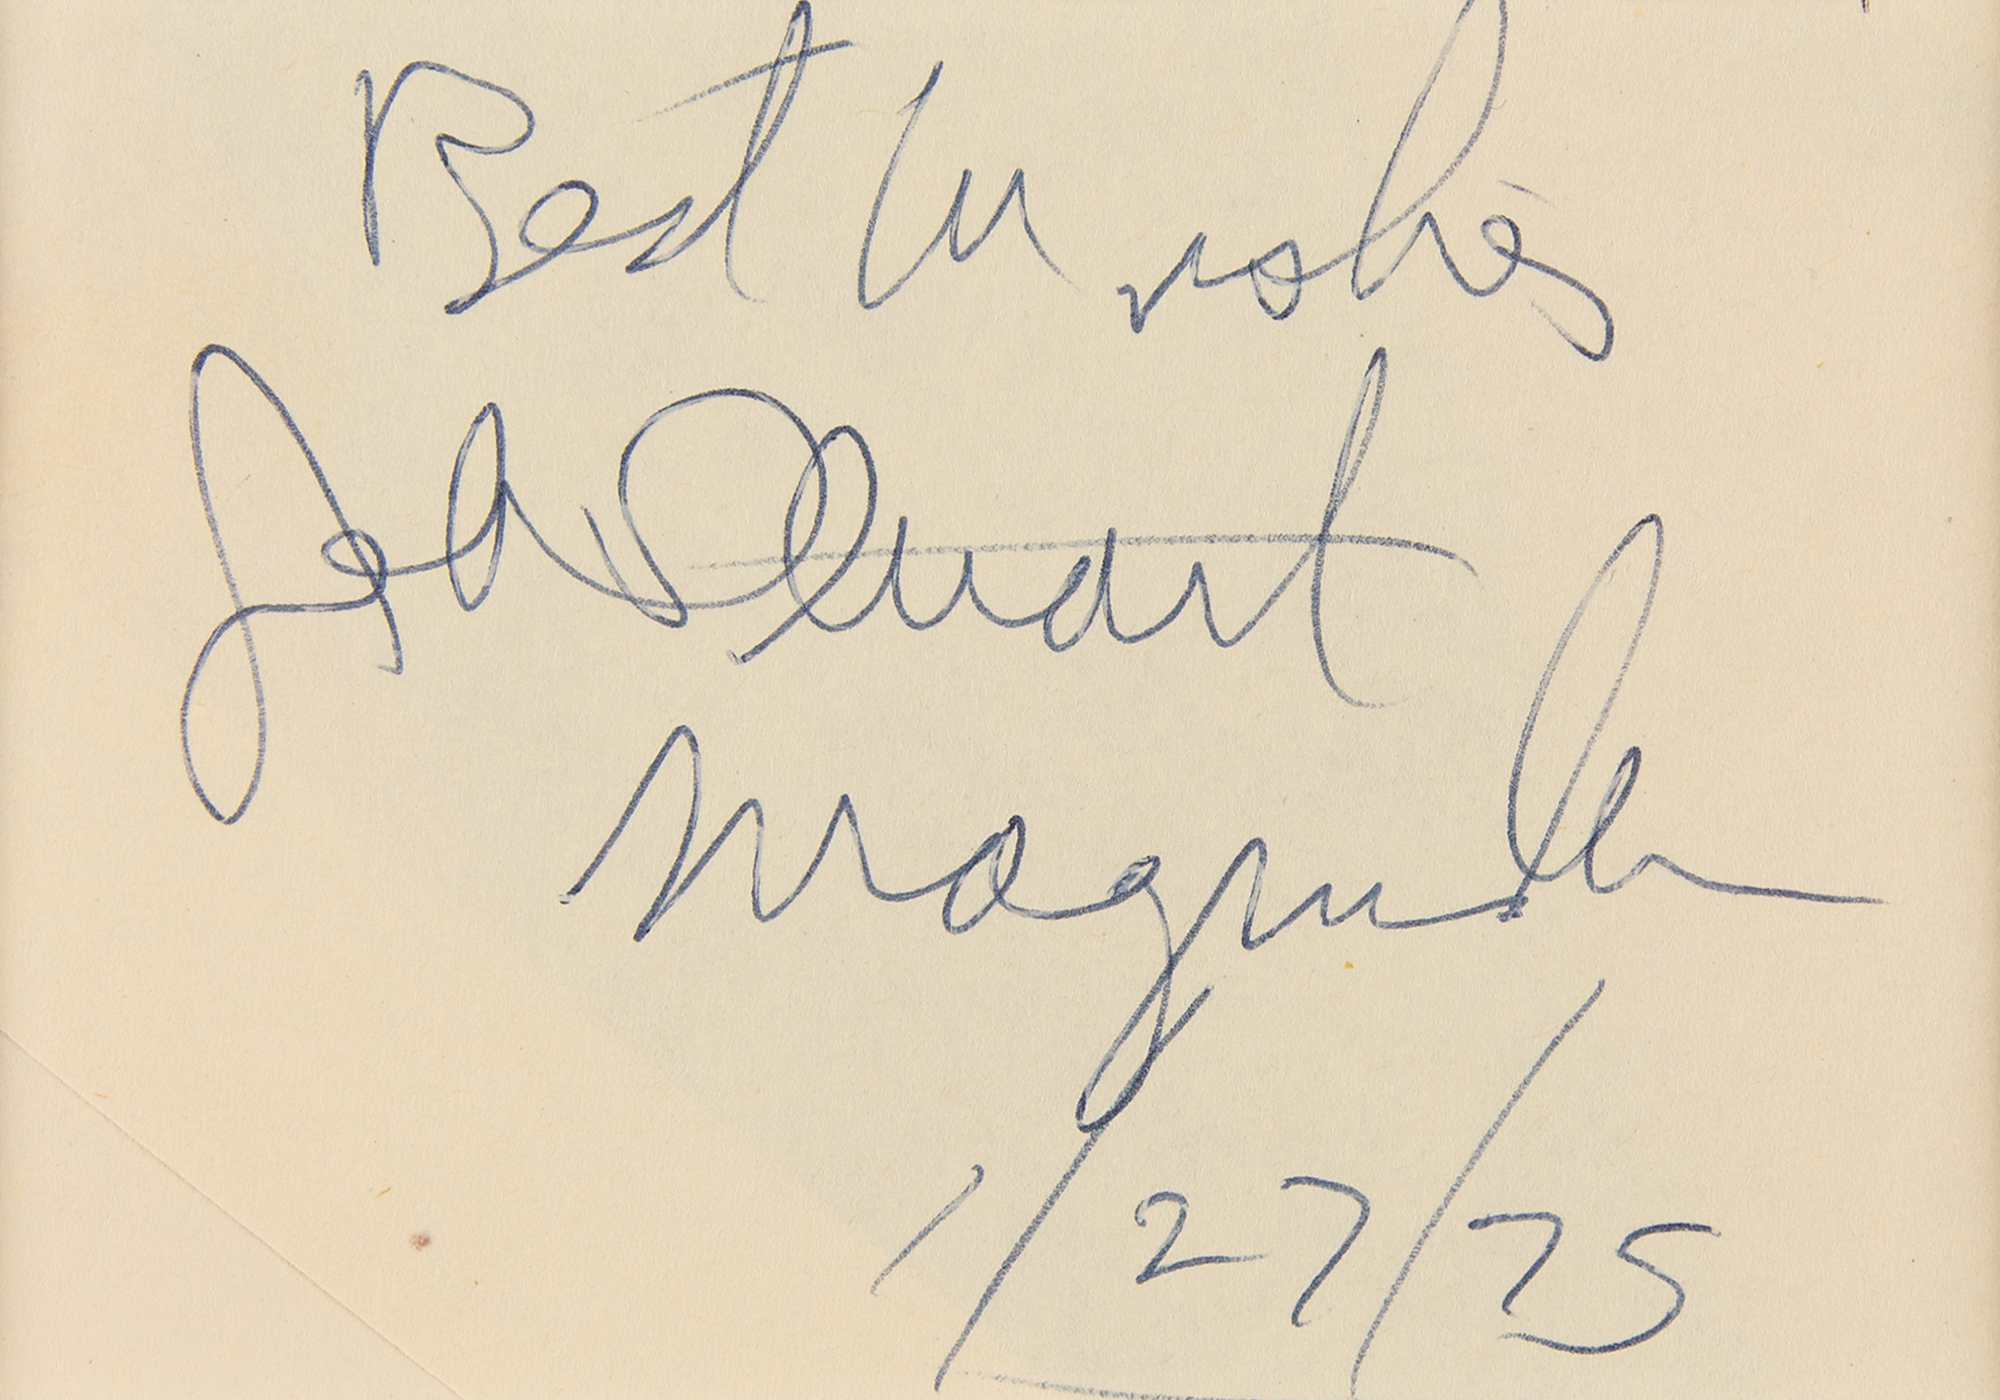 Best Wishes
Jeb Stuart
Magruder
1/27/75